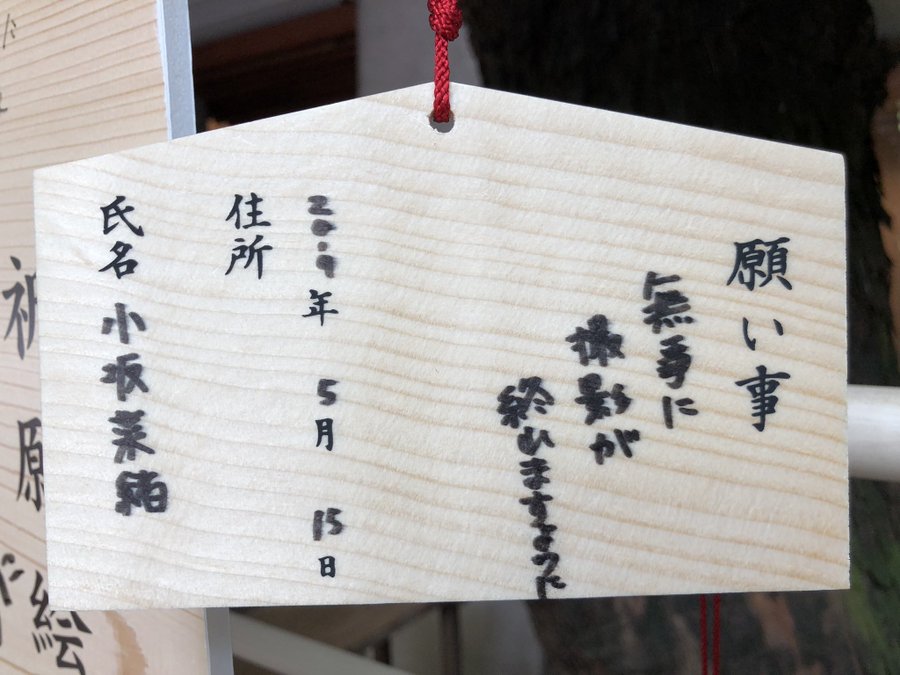 願い事
無事に
撮影が
終りますように
2019年 5月 15日
住所
氏名 小坂菜緒
祈
原
絵